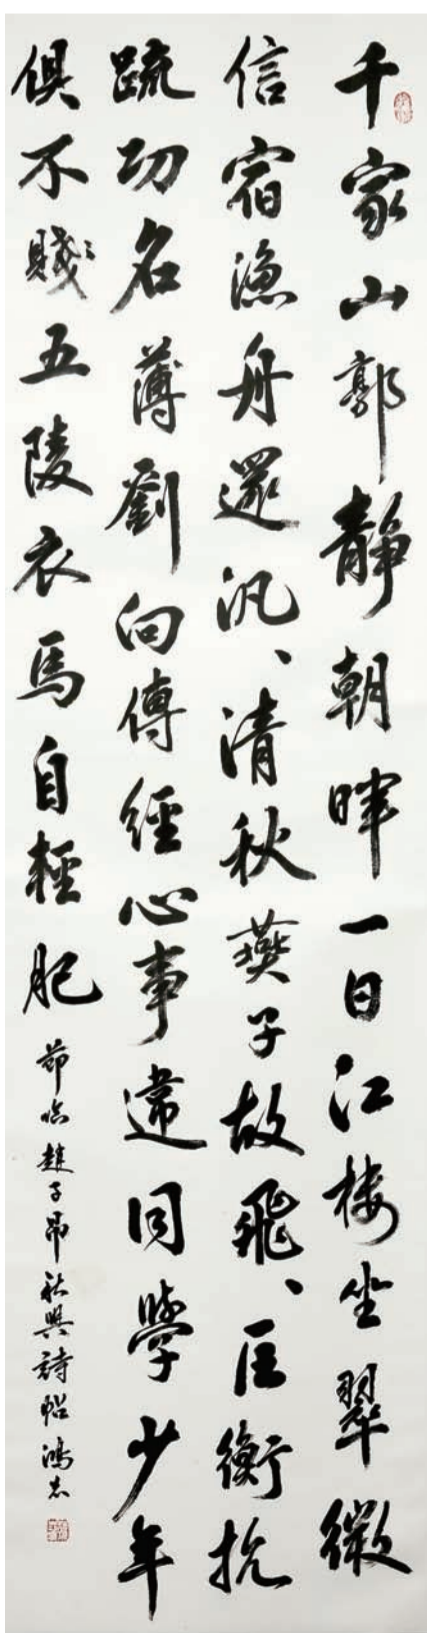 千家山郭靜朝暉一日江樓坐翠微
信宿漁舟還汎、清秋燕子故飛、匡衡抗
疏功名薄劉向傳經心事違同學少年
俱不賤五陵衣馬自輕肥
節臨趙子昂秋興詩帖鴻志